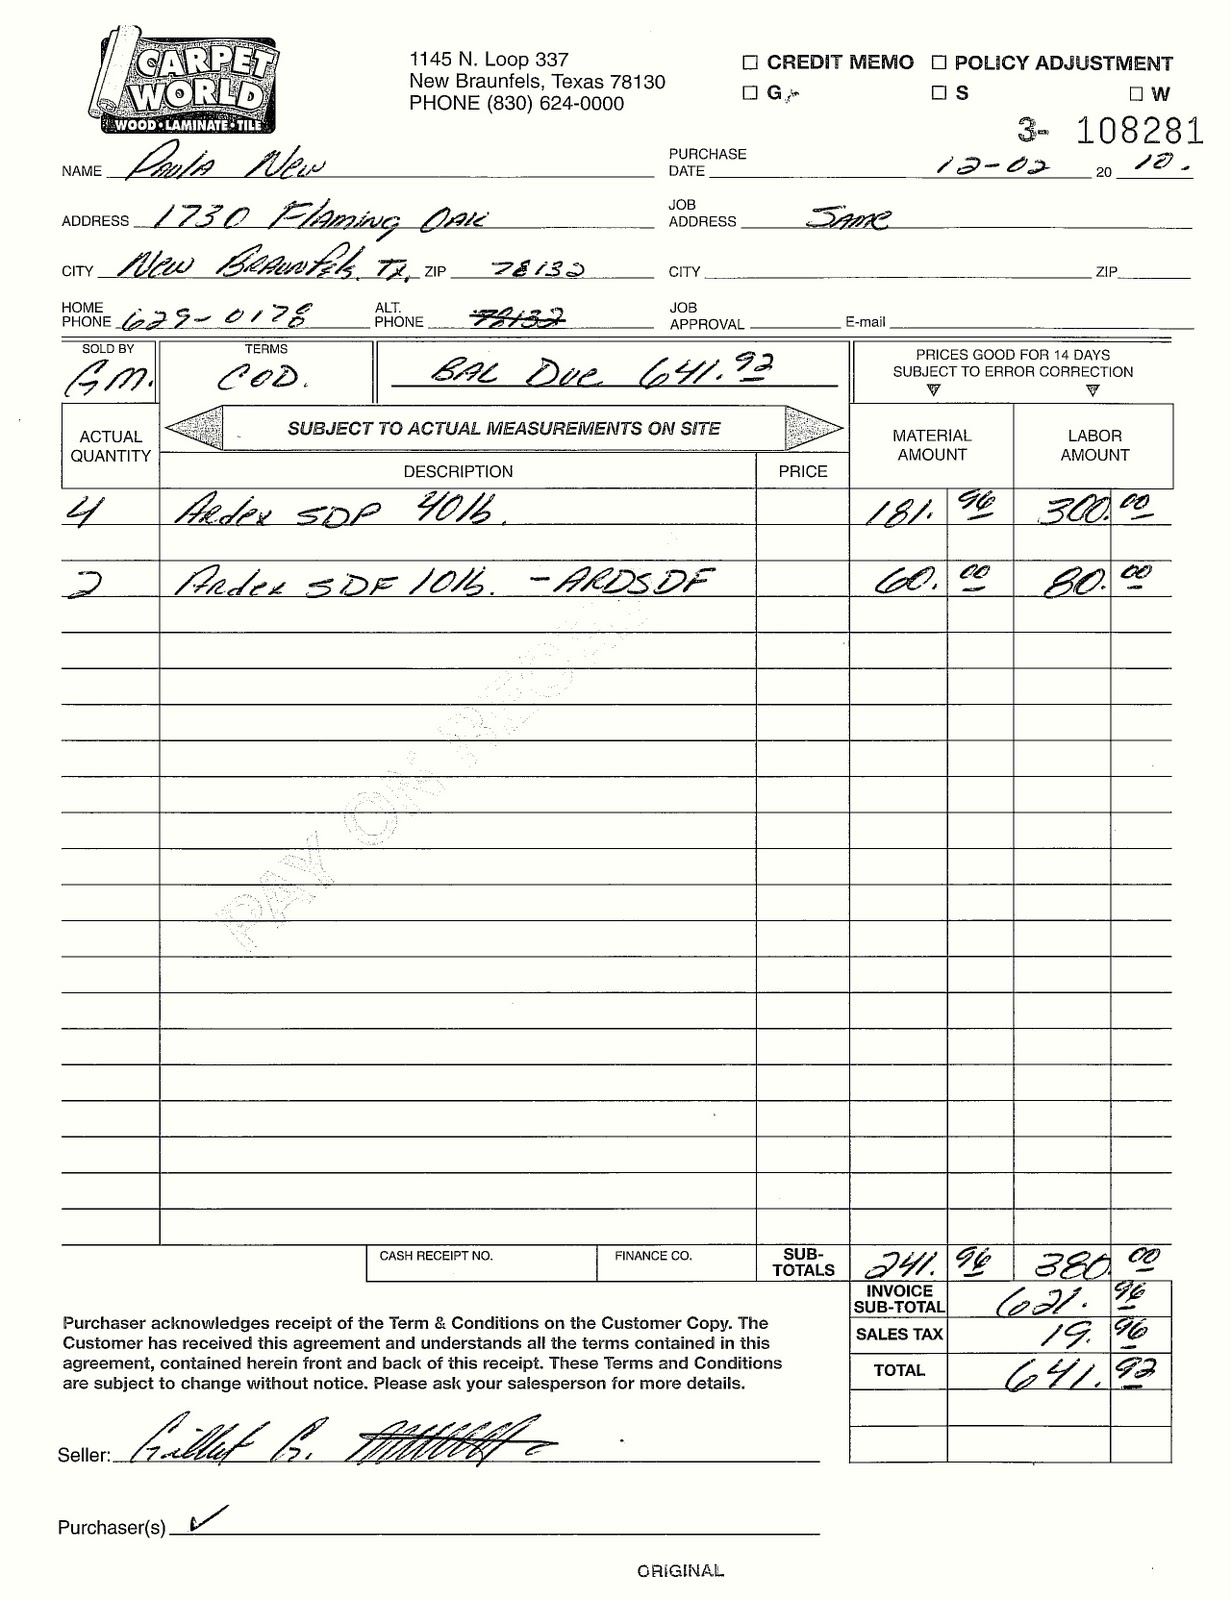 CARPET
WORLD
WOOD • LAMINATE • TILE
1145 N. Loop 337
New Braunfels, Texas 78130
PHONE (830) 624-0000
☐ CREDIT MEMO ☐ POLICY ADJUSTMENT
☐ G ☐ S ☐ W
3- 108281
NAME Paula New PURCHASE DATE 12-02 20 10.
ADDRESS 1730 Flaming Oak JOB ADDRESS Same
CITY New Braunfels, Tx, ZIP 78132 CITY ZIP
HOME PHONE 629-0178 ALT. PHONE 78132 JOB APPROVAL E-mail
SOLD BY TERMS PRICES GOOD FOR 14 DAYS
GM. COD. BAL Due 641.92 SUBJECT TO ERROR CORRECTION
ACTUAL QUANTITY SUBJECT TO ACTUAL MEASUREMENTS ON SITE MATERIAL AMOUNT LABOR AMOUNT
DESCRIPTION PRICE
4 Ardex SDP 40lb. 181.96 300.00
2 Ardex SDF 10lb. - ARDSDF 60.00 80.00
PAY ON
CASH RECEIPT NO. FINANCE CO. SUB-TOTALS 241.96 380.00
INVOICE SUB-TOTAL 621.96
SALES TAX 19.96
TOTAL 641.92
Purchaser acknowledges receipt of the Term & Conditions on the Customer Copy. The
Customer has received this agreement and understands all the terms contained in this
agreement, contained herein front and back of this receipt. These Terms and Conditions
are subject to change without notice. Please ask your salesperson for more details.
Seller: G.
Purchaser(s) ✓
ORIGINAL